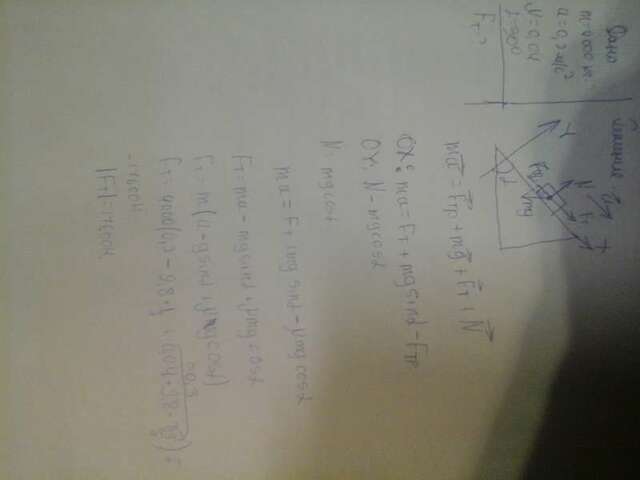 Дано
m=4000 кг
a=0,2 м/с²
μ=0,04
α=30°
Fт-?
Решение
Y
N
a
Fт
X
Fтр
mg
α
ma = Fтр + mg + Fт + N
OX: ma = Fт + mg sinα - Fтр
OY: N - mg cosα
N = mg cosα
ma = Fт + mg sinα - μmg cosα
Fт = ma - mg sinα + μmg cosα
Fт = m(a - g sinα + μg cosα)
-17600Н
|Fт| = 17600Н